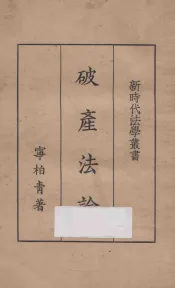 新時代法學叢書
破產法論
寧柏青著